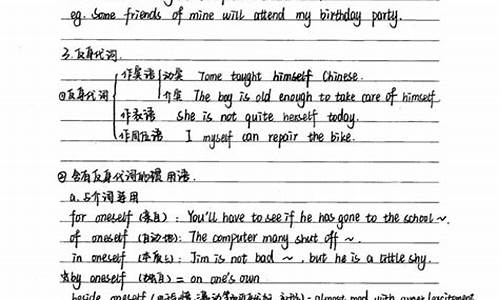 eg. Some friends of mine will attend my birthday party.
3. 反身代词.
作宾语 动宾 Tome taught himself Chinese.
①反身代词 介宾 The boy is old enough to take care of himself
作表语 She is not quite herself today.
作同位语 I myself can repair the bike.
② 含有反身代词的惯用语.
a. 与介词连用
for oneself (亲自): You'll have to see if he has gone to the school ~.
of oneself (自动地): The computer many shut off ~.
in oneself (本质上): Jim is not bad ~, but he is a little shy.
by oneself = on one's own
beside oneself almost mad with